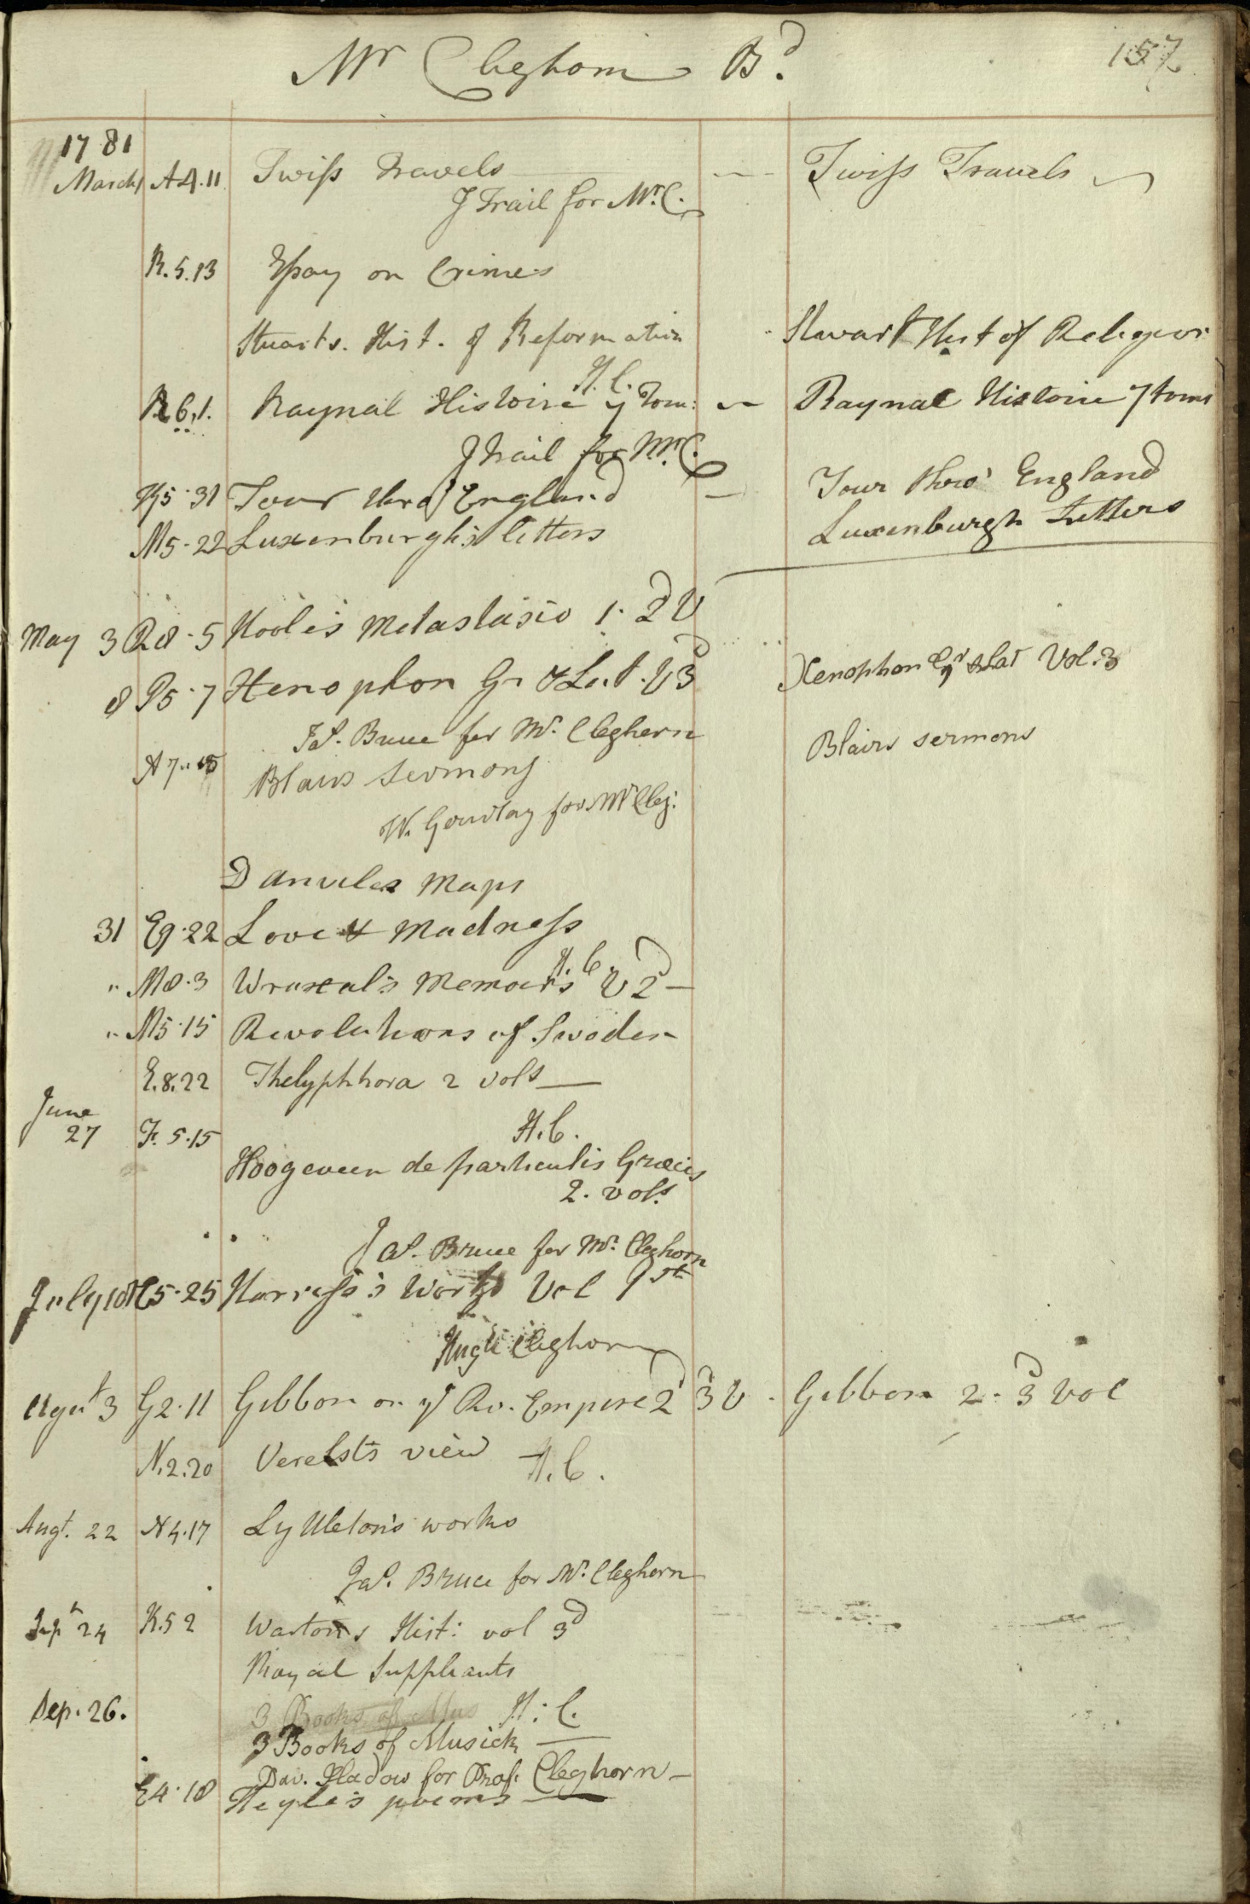 Mr Cleghorn Bd. 157
1781
March A4.11 Twiss Travels — Twiss Travels
J Trail for Mr. C.
R.5.13 Essay on Crimes
Stuarts. Hist. of Reformation - Stuart Hist of Religion
H.C.
R.6.1. Raynal Histoire 7 Tom: — Raynal Histoire 7 toms
J Trail for Mr. C.
5.31 Tour thro' England — Tour thro' England
M5.22 Luxenburgh's letters Luxenburgh Letters
May 3 R8.5 Hool's Metastasio 1. 2d V
8 P5.7 Xenophon Gr & Lat. V 3d Xenophon Gr & Lat Vol. 3
Jas. Bruce for Mr. Cleghorn
A7.. Blairs Sermons Blairs sermons
W. Gourlay for Mr Cleg:
Danviles Maps
31 E9.22 Love & Madness
H.C.
" M8.3 Wraxal's Memoirs V 2d —
" M5.15 Revolutions of Sweden
E.8.22 Thelyphhora 2 vols —
June
27 F.5.15 H.C.
Hoogeveen de particulis Græcis
2. vols.
Jas. Bruce for Mr. Cleghorn
July 10 5.25 Harriss's Works Vol 1st
Hugh Cleghorn
Agust 3 G2.11 Gibbon on ye Ro. Empire 2d 3d V - Gibbon 2. 3d Vol
N.2.20 Verelsts view H.C.
Augt. 22 N4.17 Lyttleton's works
Jas. Bruce for Mr. Cleghorn
Sept 24 K.5 2 Warton's Hist: vol 3d
Royal Suppliants
Sep. 26. 3 Books of Mus H:C.
3 Books of Musick —
Dav. Hadow for Prof. Cleghorn —
E4.18 Heyle's poems —